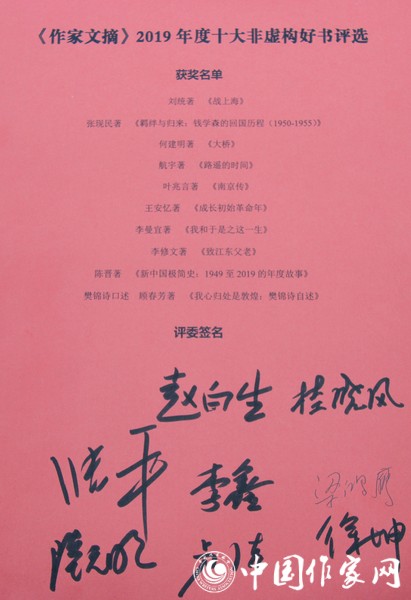 《作家文摘》2019 年度十大非虚构好书评选
获奖名单
刘统著 《战上海》
张现民著 《羁绊与归来：钱学森的回国历程（1950-1955）》
何建明著 《大桥》
航宇著 《路遥的时间》
叶兆言著 《南京传》
王安忆著 《成长初始革命年》
李曼宜著 《我和于是之这一生》
李修文著 《致江东父老》
陈晋著 《新中国极简史：1949 至 2019 的年度故事》
樊锦诗口述 顾春芳著 《我心归处是敦煌：樊锦诗自述》
评委签名
赵白生 桂晓风
平
李鑫
梁鸿鹰
徐坤
中国作家网